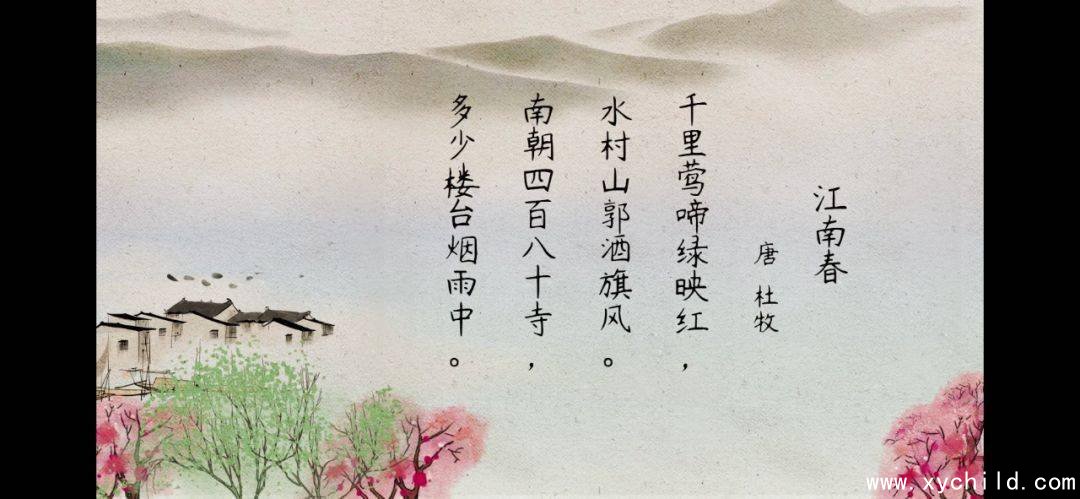 江南春
唐 杜牧
千里莺啼绿映红，
水村山郭酒旗风。
南朝四百八十寺，
多少楼台烟雨中。
www.xychild.com